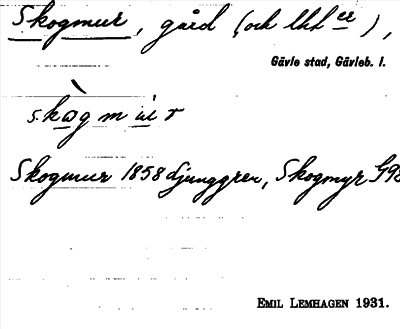 Skogmur, gård (och lkl er),
Gävle stad, Gävleb. l.
Skogmur 1858 Ljunggren, Skogmyr G98
EMIL LEMHAGEN 1931.